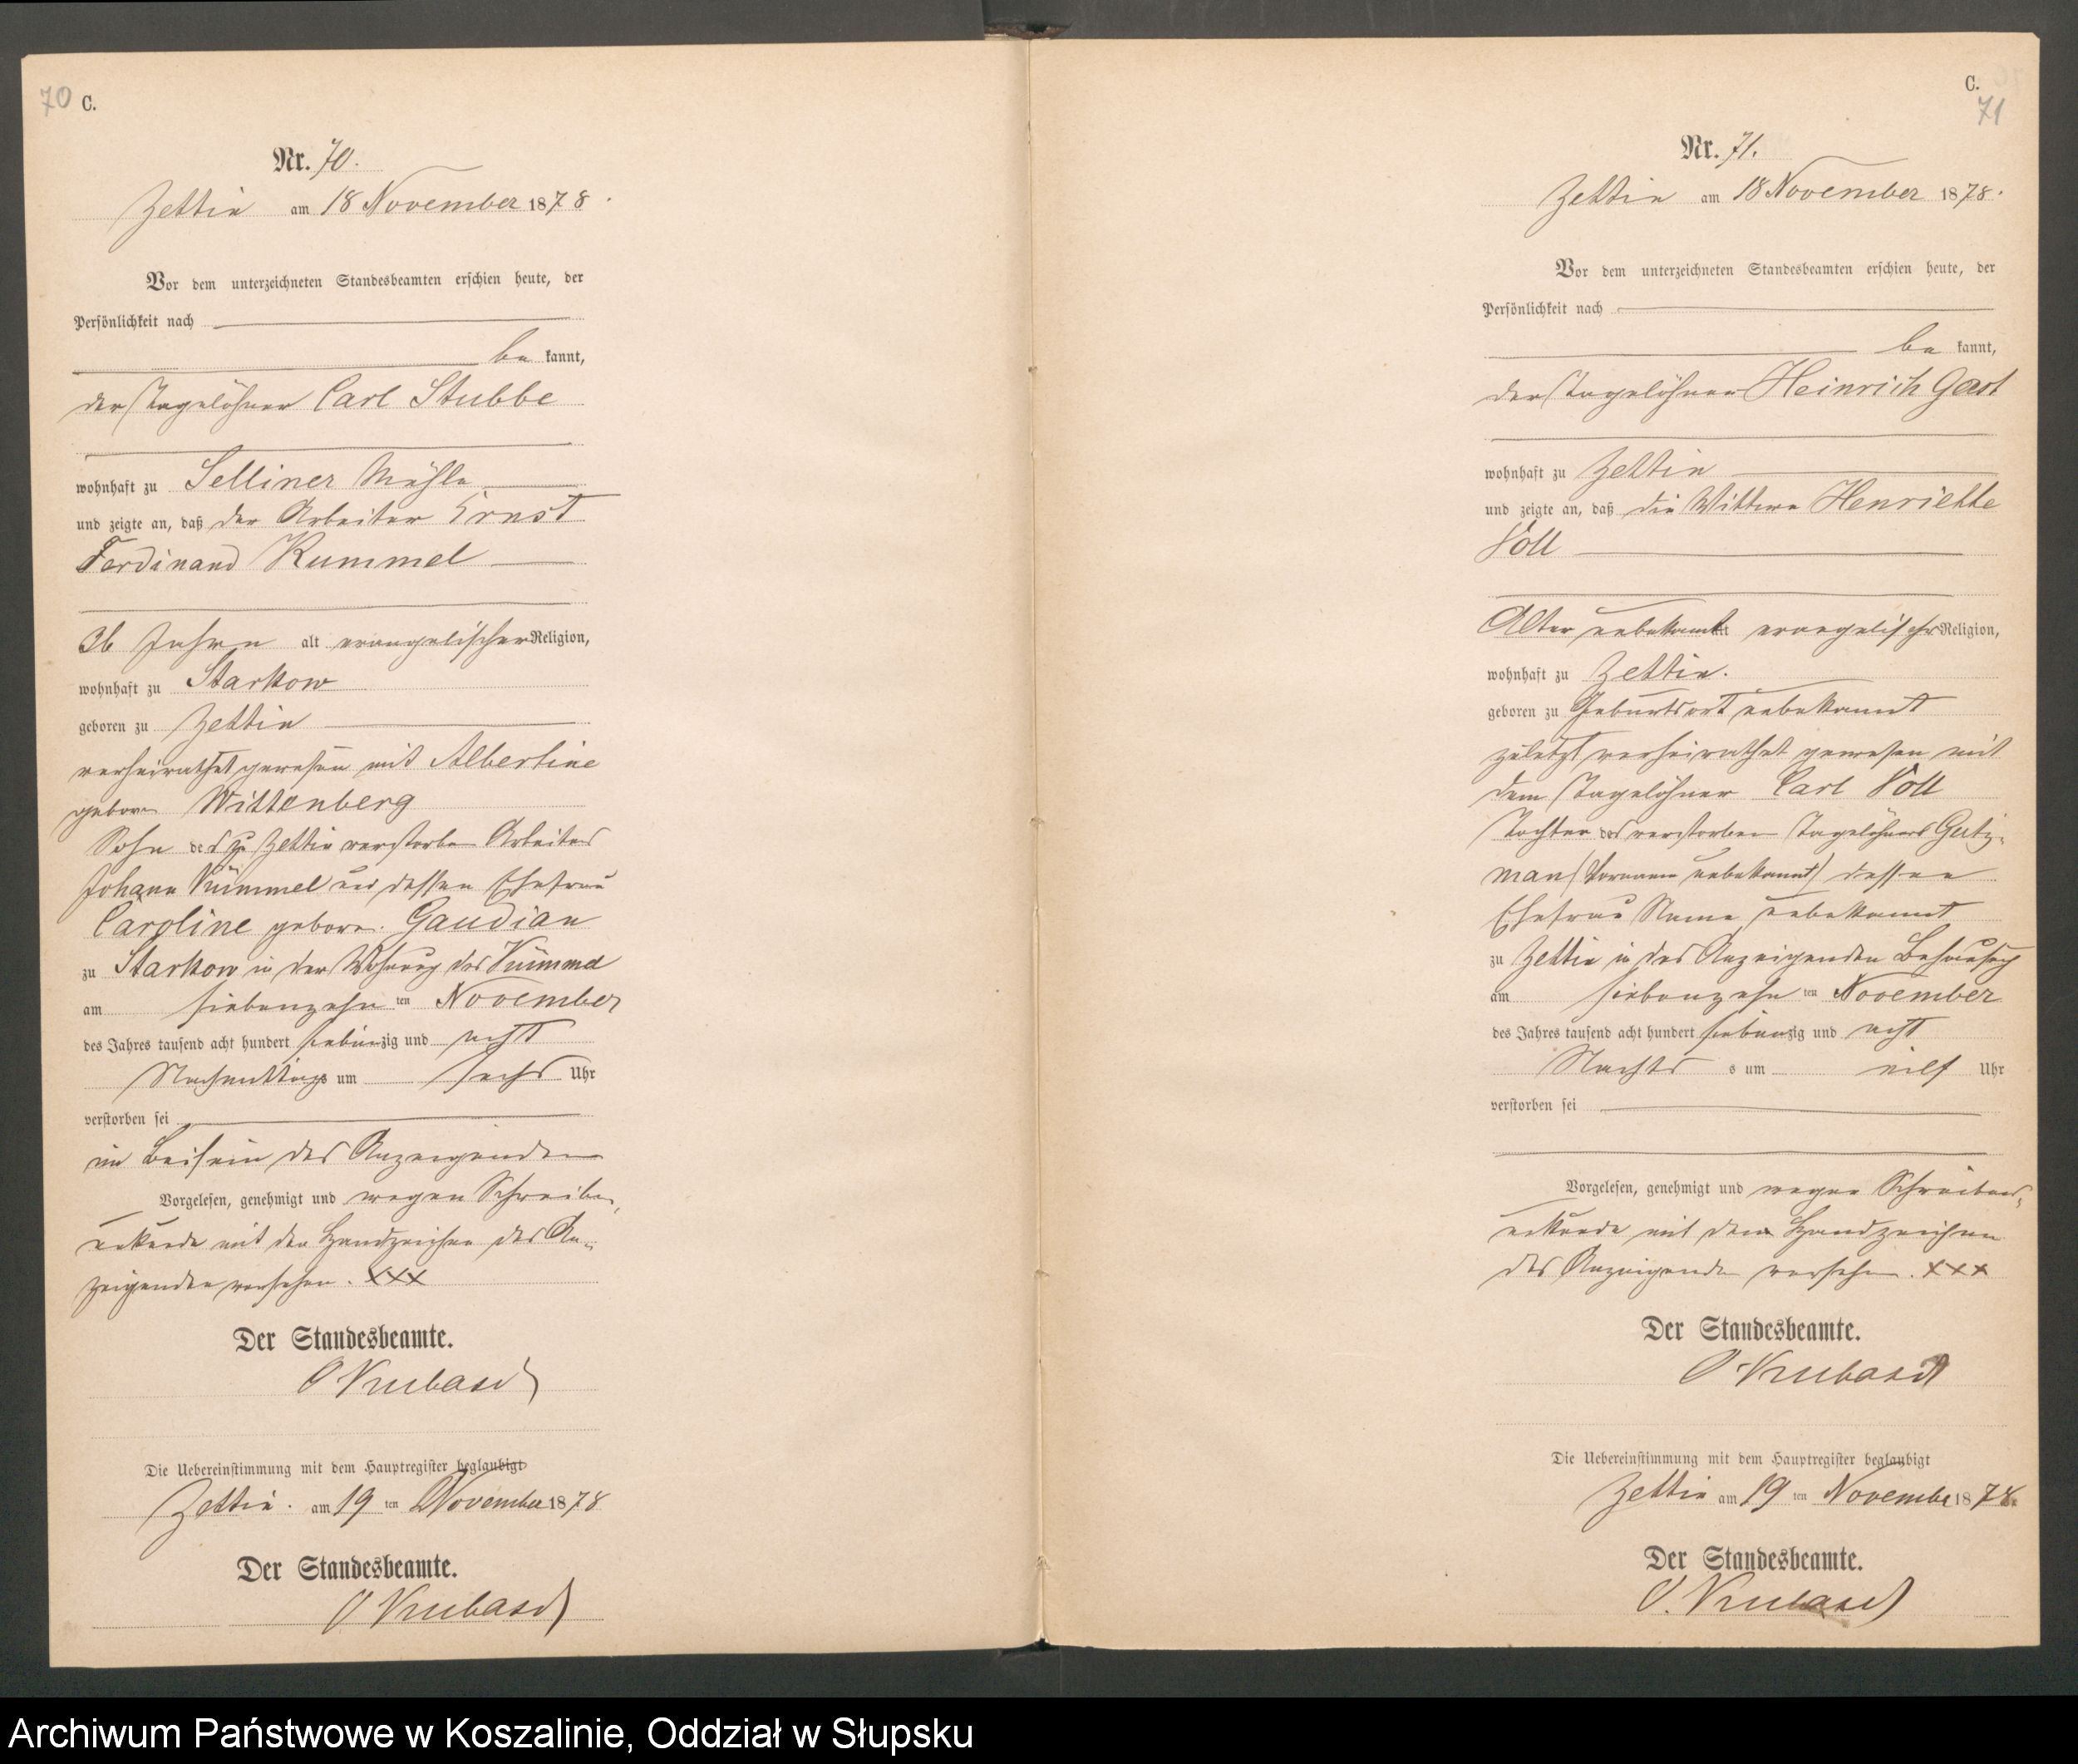 70 C.
Nr. 70.
Zettin am 18 November 1878.
Vor dem unterzeichneten Standesbeamten erschien heute, der
Persönlichkeit nach
be kannt,
der Tagelöhner Carl Stubbe
wohnhaft zu Selliner Mühle
und zeigte an, daß der Arbeiter Ernst
Ferdinand Kummel
36 Jahre alt evangelischer Religion,
wohnhaft zu Starkow
geboren zu Zettin
verheirathet gewesen mit Albertine
geboren Wittenberg
Sohn des zu Zettin verstorben Arbeiters
Johann Kümmel und dessen Ehefrau
Caroline geboren. Gaudian
zu Starkow in der Wohnung des Kümmel
am siebenzehn ten November
des Jahres tausend acht hundert siebenzig und acht
Nachmittags um sechs Uhr
verstorben sei
im Beisein des Anzeigenden
Vorgelesen, genehmigt und wegen Schreibe,
unkunde mit den Handzeichen des An-
zeigenden versehen. XXX
Der Standesbeamte.
O Krubasd
Die Uebereinstimmung mit dem Hauptregister beglaubigt
Zettin. am 19 ten November 1878
Der Standesbeamte.
O Krubasd
C.
71
Nr. 71.
Zettin am 18 November 1878.
Vor dem unterzeichneten Standesbeamten erschien heute, der
Persönlichkeit nach
be kannt,
der Tagelöhner Heinrich Gast
wohnhaft zu Zettin
und zeigte an, daß die Wittwe Henriette
Voll
Alter unbekannt alt evangelischer Religion,
wohnhaft zu Zettin.
geboren zu Geburtsort unbekannt
zuletzt verheirathet gewesen mit
dem Tagelöhner Carl Voll
Tochter des verstorben Tagelöhners Gutz-
man (Vorname unbekannt) dessen
Ehefrau Name unbekannt
zu Zettin in des Anzeigenden Behausung
am siebenzehn ten November
des Jahres tausend acht hundert siebenzig und acht
Nachts s um eilf Uhr
verstorben sei
Vorgelesen, genehmigt und wegen Schreibens-
unkunde mit dem Handzeichen
des Anzeigenden versehen. XXX
Der Standesbeamte.
O Krubasd
Die Uebereinstimmung mit dem Hauptregister beglaubigt
Zettin am 19 ten November 1878.
Der Standesbeamte.
O. Krubasd
Archiwum Państwowe w Koszalinie, Oddział w Słupsku